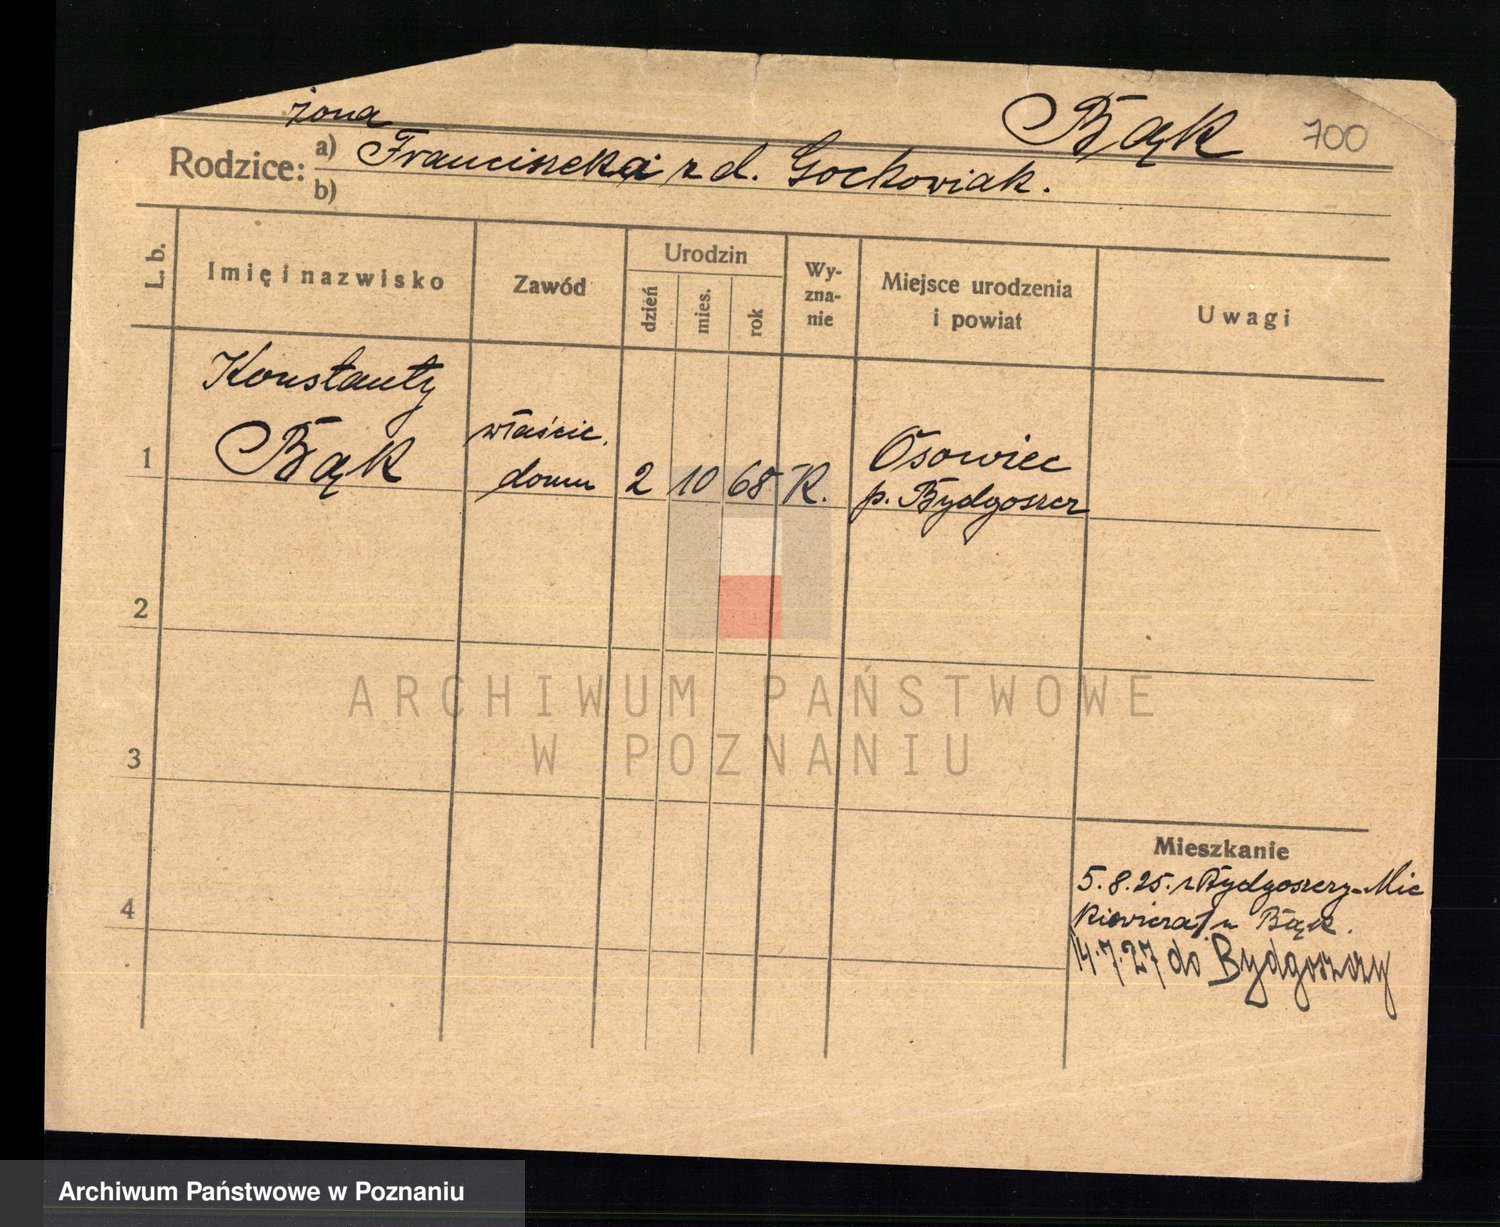 żona
Bąk 700
Rodzice: a) Franciszeka z d. Gockowiak.
b)
L. b.
Imię i nazwisko
Zawód
Urodzin
dzień
mies.
rok
Wy-
zna-
nie
Miejsce urodzenia
i powiat
Uwagi
Konstanty
Bąk
właścic.
domu
1
2 10 68 K.
Osowiec
p. Bydgoszcz
2
3
4
ARCHIWUM PAŃSTWOWE
W POZNANIU
Mieszkanie
5.8.25. z Bydgoszczy-Mic
kiewicza u Bąk.
14.7.27 do Bydgoszczy
Archiwum Państwowe w Poznaniu